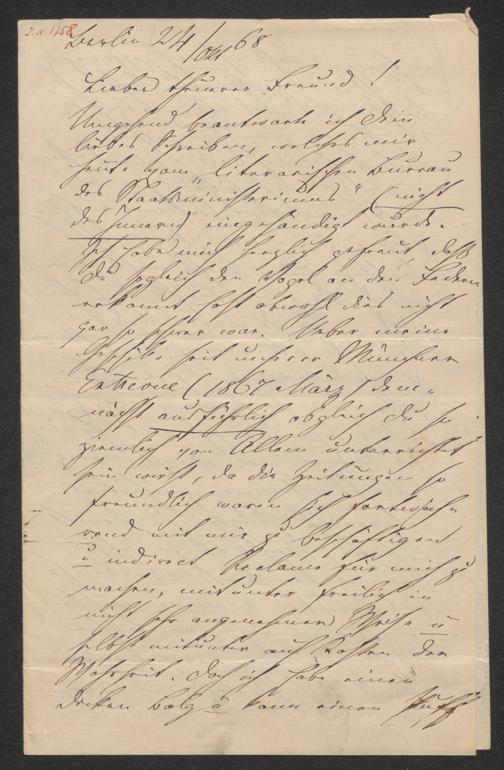 I.N. 1758
Berlin 24/Okt 68
Lieber theurer Freund!
Umgehend beantworte ich Dein
liebes Schreiben, welches mir
heute vom „literarischen Bureau
des Staatsministeriums" (nicht
des Innern) eingehändigt wurde.
Ich habe mich herzlich gefreut, daß
Du sogleich den Vogel an den Federn
erkannt hast obwohl dies nicht
gar so schwer war. Ueber meine
Schicksale seit unserer Münchner
Entrevue (1867 März) dem-
nächst ausführlich obgleich Du so
ziemlich von Allem unterrichtet
sein wirst, da die Zeitungen so
freundlich waren sich fortwäh-
rend mit mir zu beschäftigen
u indirect Reclame für mich zu
machen, mitunter freilich in
nicht sehr angenehmer Weise u
selbst mitunter auf Kosten der
Wahrheit. Doch ich habe einen
dicken Balg u kann einen Puff